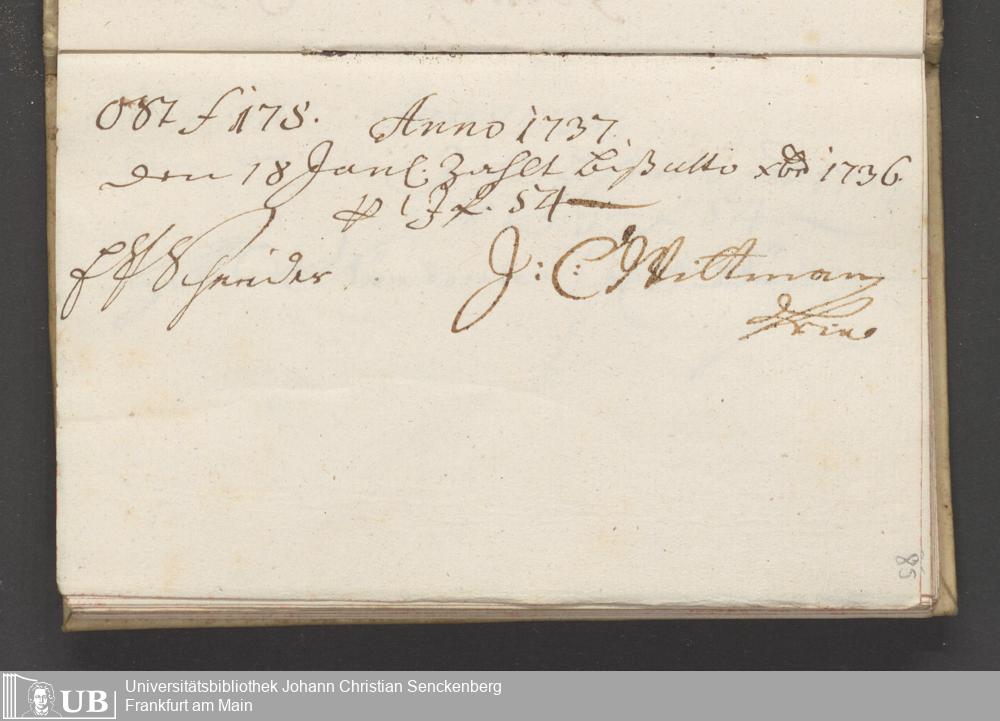 f 178. Anno 1737
den 18 Janl. Zahlt biß ulto xbr 1736
fl. 54
Schneider J: C: Wittman
85
UB
Universitätsbibliothek Johann Christian Senckenberg
Frankfurt am Main